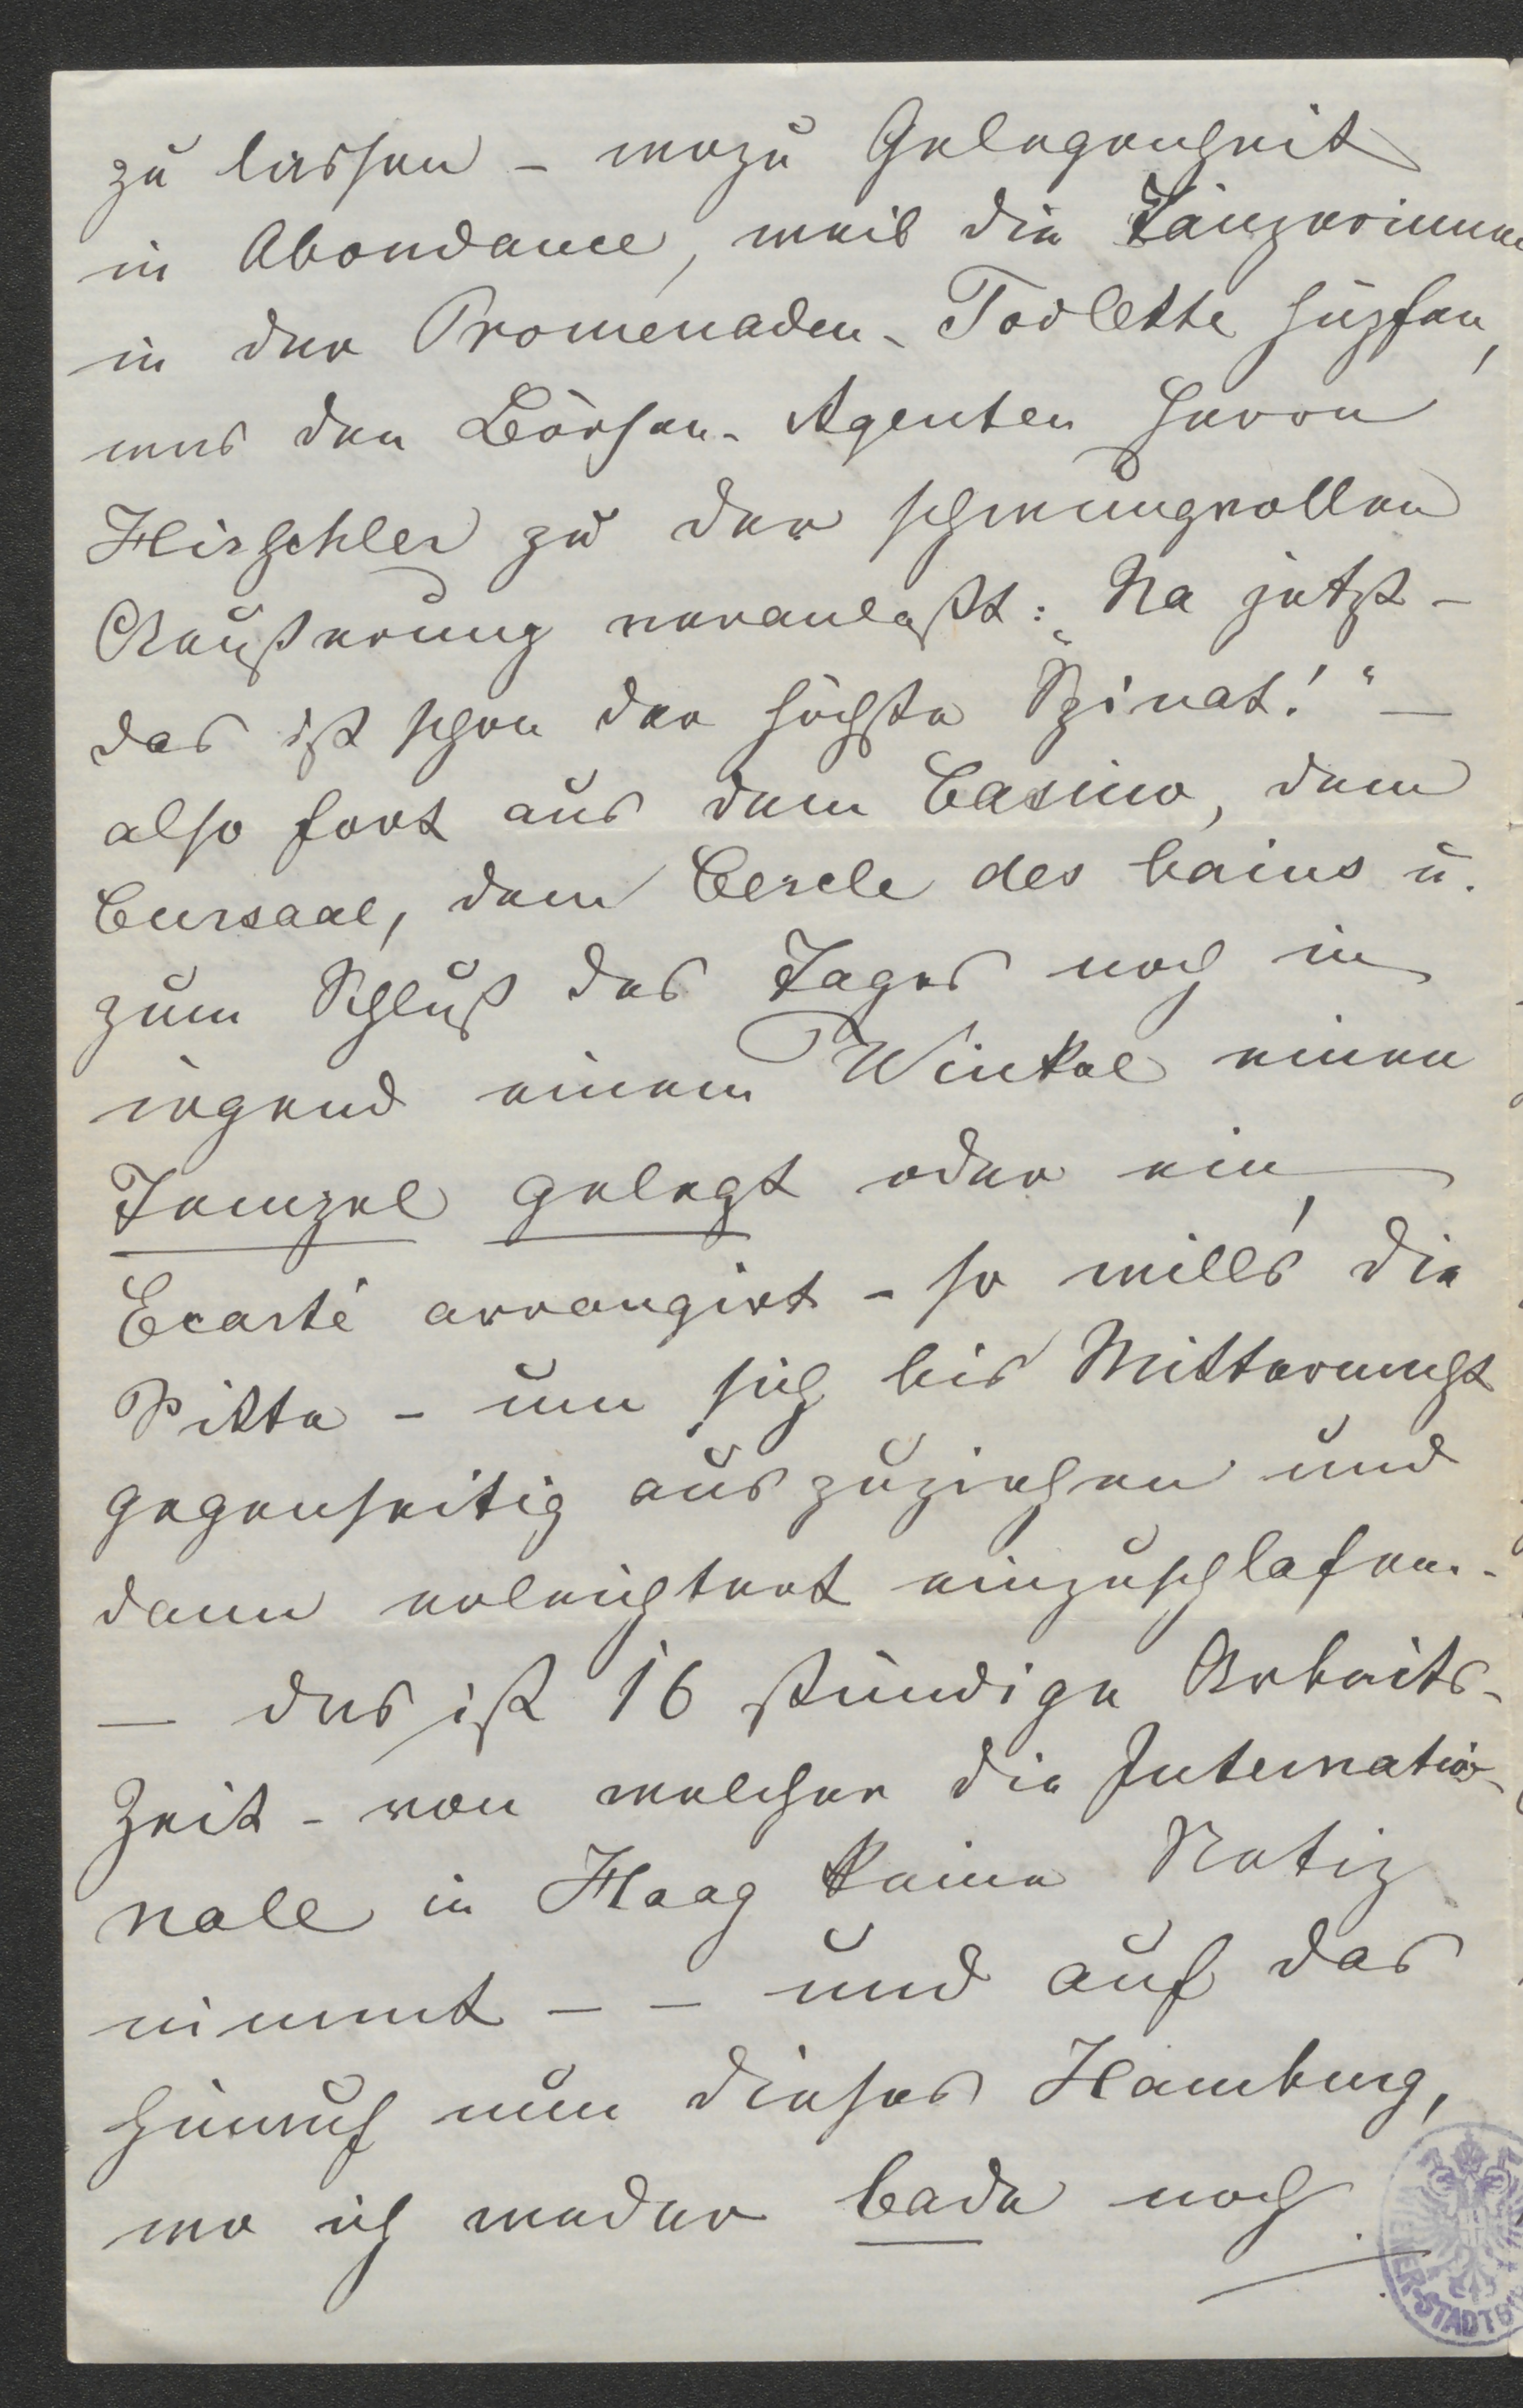 zu lassen – wozu Gelegenheit
in Abondance, weil die Tänzerinnen
in der Promenaden-Toilette hüpfen,
was den Börsen-Agenten Herrn
Hirschler zu der schwungvollen
Aeußerung veranlaßt: „Na jetzt –
das ist schon der höchste Spinat!“ –
also fort aus dem Casino, dem
Cursaal, dem Cercle des bains u.
zum Schluß des Tages noch in
irgend einem Winkel einen
Tempel gelegt oder ein
Ecarté arrangirt – so will's die
Sitte – um sich bis Mitternacht
gegenseitig auszuziehen und
dann erleichtert einzuschlafen.
– das ist 16 stündige Arbeits-
Zeit – von welcher die Internatio-
nale in Haag keine Notiz
nimmt – – und auf das
hinauf nun dieses Hamburg,
wo ich weder bade noch
WIENER-STADTB